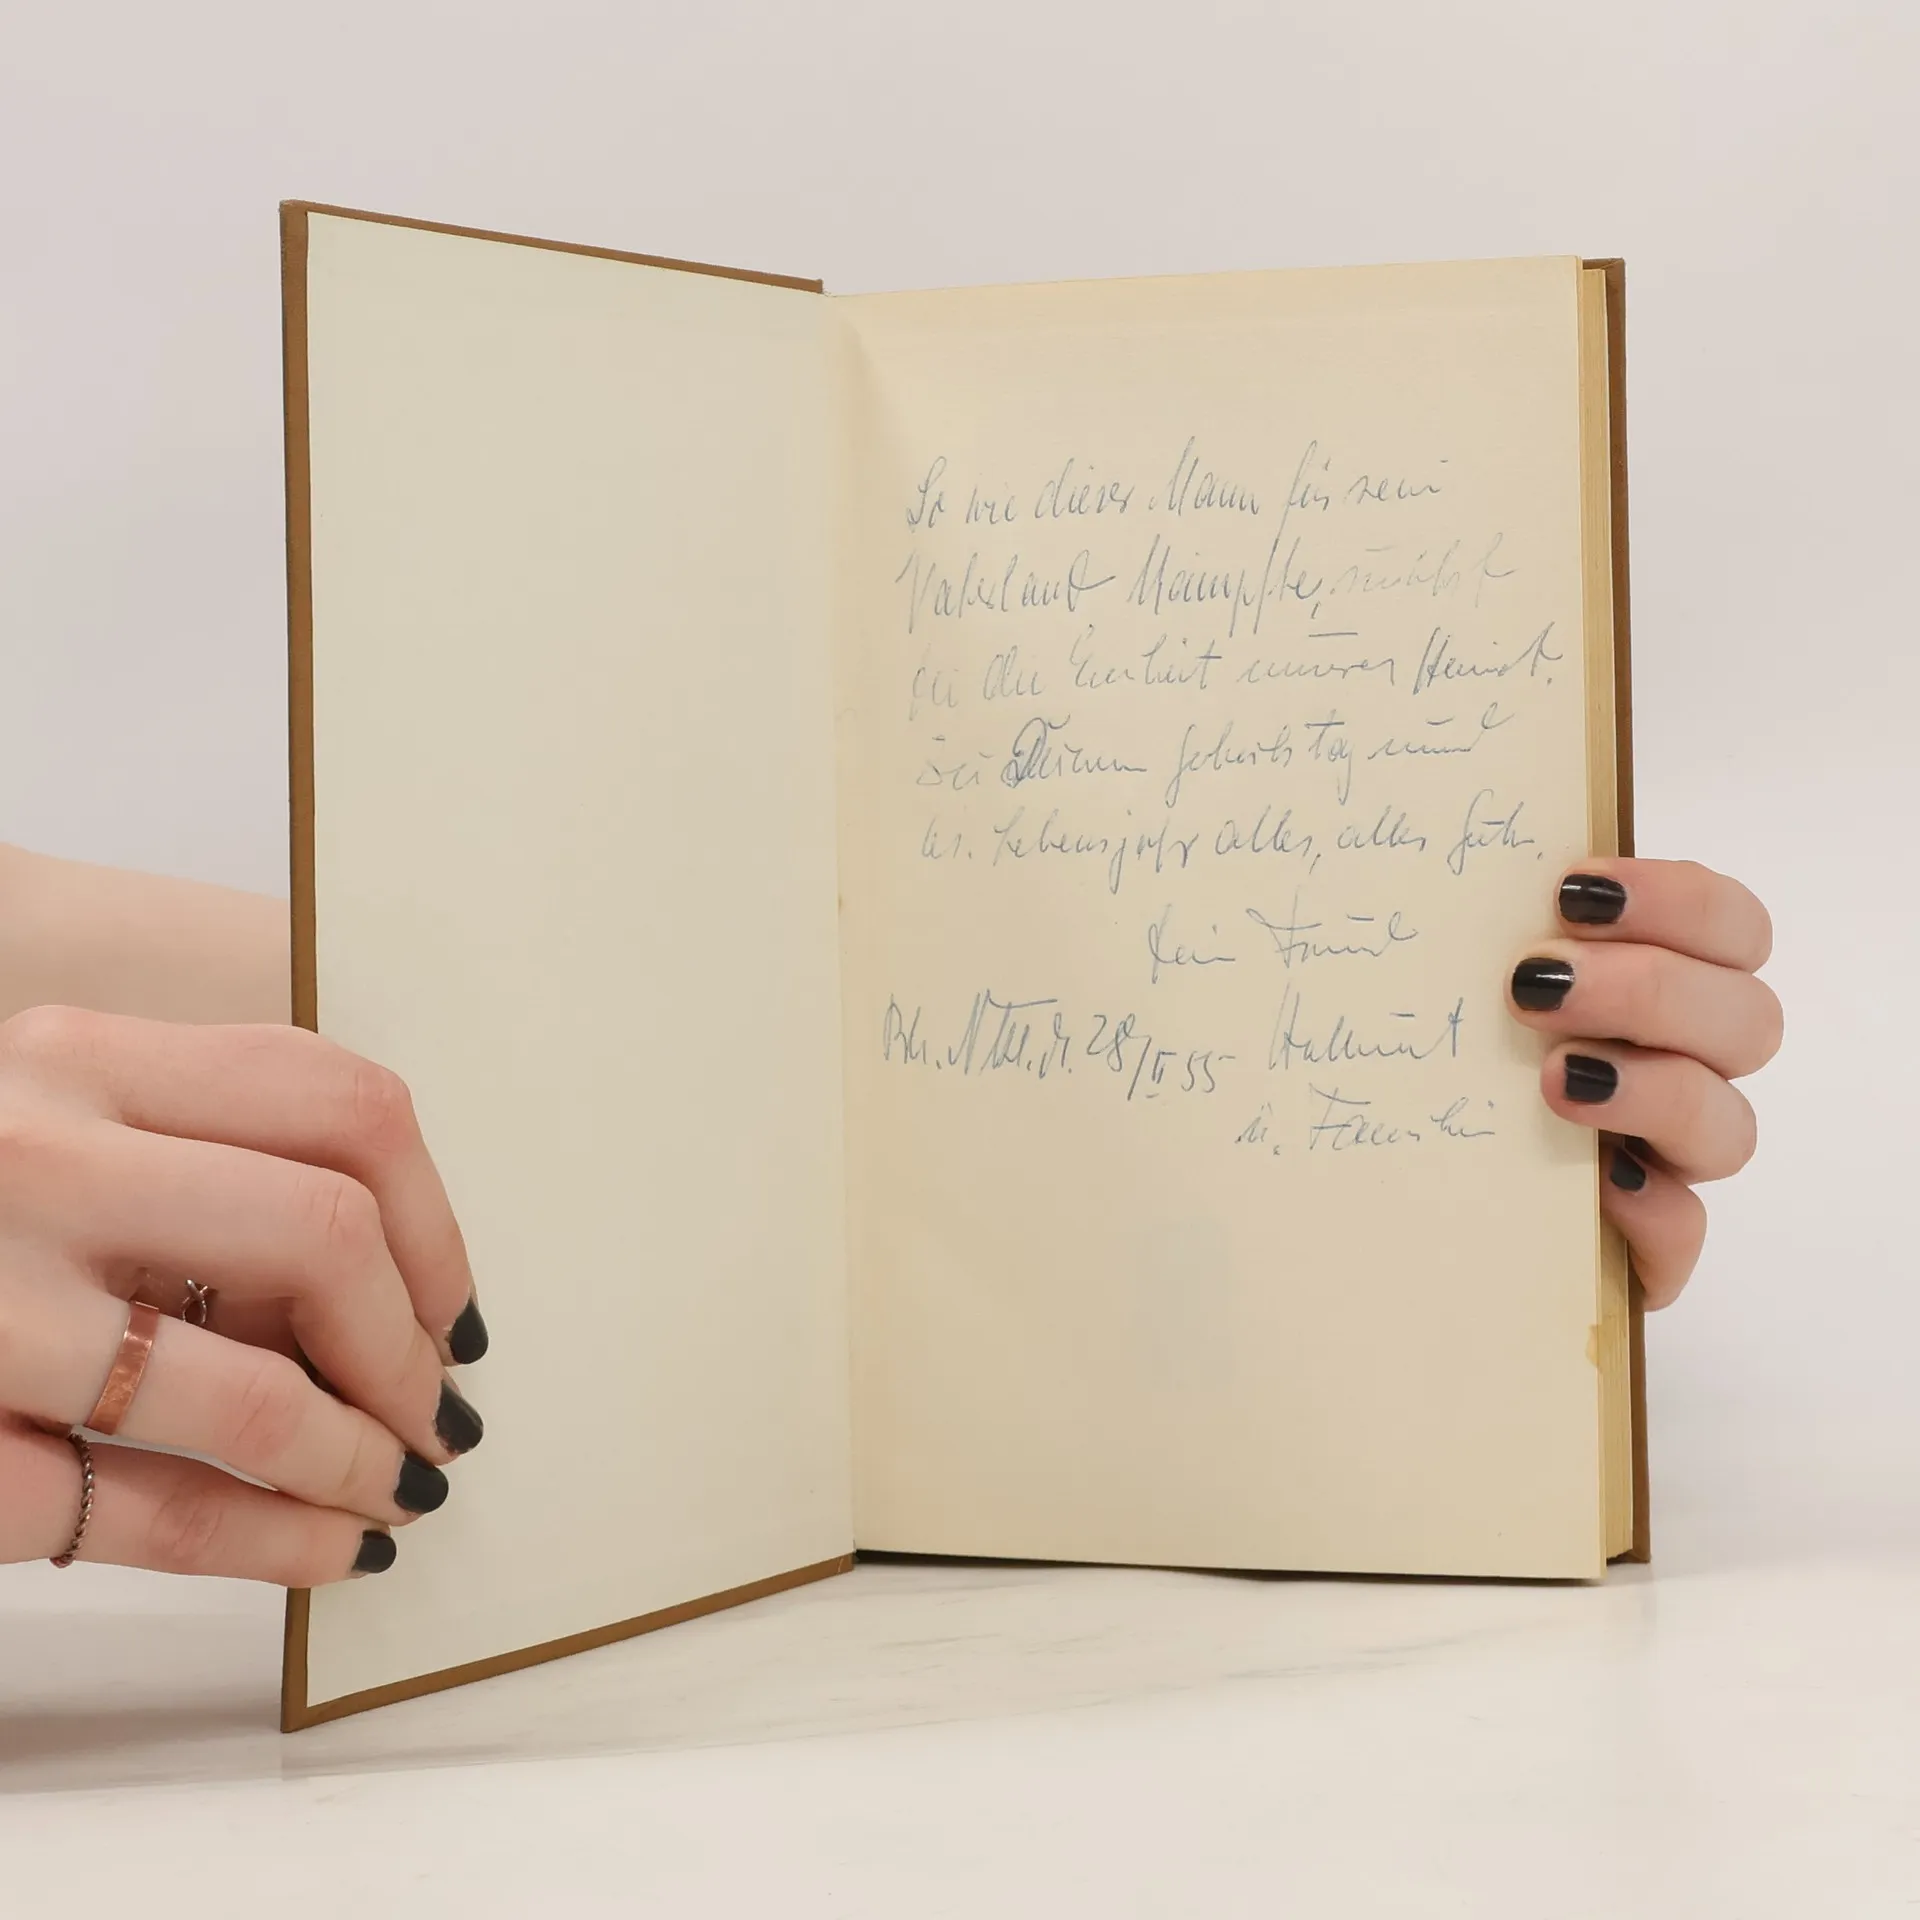 So wie dieser Mann für sein
Vaterland kämpfte,
für die Einheit unserer Heimat.
Zu Deinem Geburtstag und
Lebensjahr alles, alles Gute.
Dein Freund
28/II 55 Hellmut
u. Familie